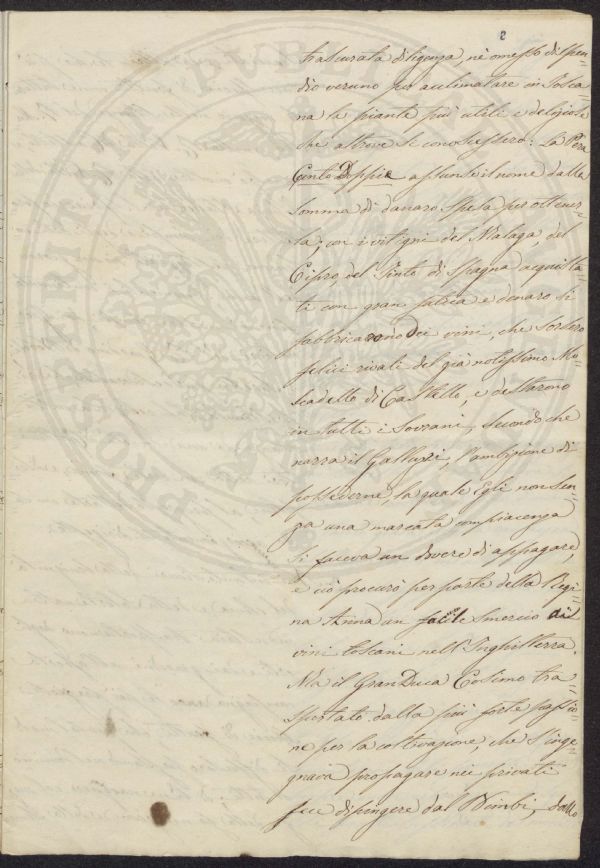 8
trascurata diligenza, nè omesso dispen=
dio veruno per acclimatare in Tosca
na le piante più utili e deliziose
che altrove si conoscessero: La Pera
Cento Doppie assunse il nome dalla
somma di danaro spesa per ottener=
la; con i vitigni del Malaga, del
Cipro, del Tinto di Spagna acquista
ti con gran fatica e denaro si
fabbricarono dei vini, che
felici rivali del già notissimo Mo=
scadello di Castello, e destarono
in tutti i Sovrani, secondo che
narra il Galluzzi, l'ambizione di
possederne, la quale Egli non sen=
za una marcata compiacenza
si faceva un dovere di appagare,
e ciò procurò per parte della Regi=
na Anna un facile smercio ai
vini toscani nell'Inghilterra.
Ma il Gran Duca Cosimo tra=
sportato dalla più forte passio=
ne per la coltivazione, che s'inge=
gnava propagare nei privati
fece dipingere dal Bimbi, dallo
PROSPERITATI PUBLI